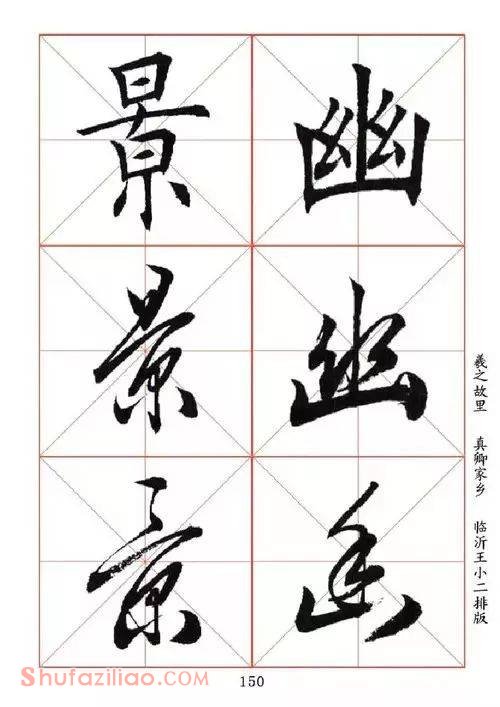 幽
幽
幽
景
景
景
羲之故里 真卿家乡 临沂王小二排版
150
Shufaziliao.com